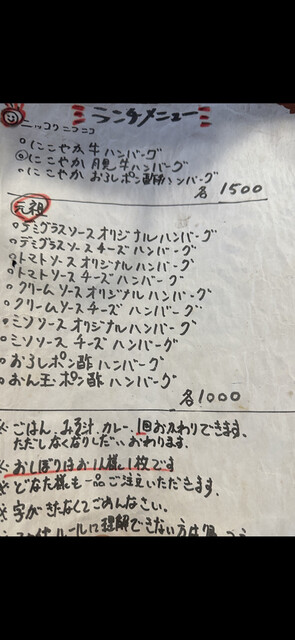 ランチメニュー
ニッコリニコニコ
○にこやか牛ハンバーグ
◎にこやか月見牛ハンバーグ
○にこやかおろしポン酢牛ハンバーグ
各1500
元祖
○デミグラスソースオリジナルハンバーグ
○デミグラスソースチーズハンバーグ
○トマトソースオリジナルハンバーグ
○トマトソースチーズハンバーグ
○クリームソースオリジナルハンバーグ
○クリームソースチーズハンバーグ
○ミソソースオリジナルハンバーグ
○ミソソースチーズハンバーグ
○おろしポン酢ハンバーグ
○おん玉ポン酢ハンバーグ
各1000
※ごはん、みそ汁、カレー、1回おかわりできます。
ただしなくなりしだいおわります。
※おしぼりはお1人様1枚です
※どなた様も一品ご注文いただきます。
※字がきたなくてごめんなさい。
ルールに理解できない方は